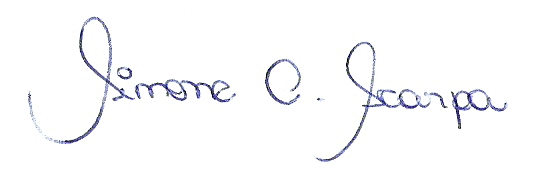 Simone C. Scarpa